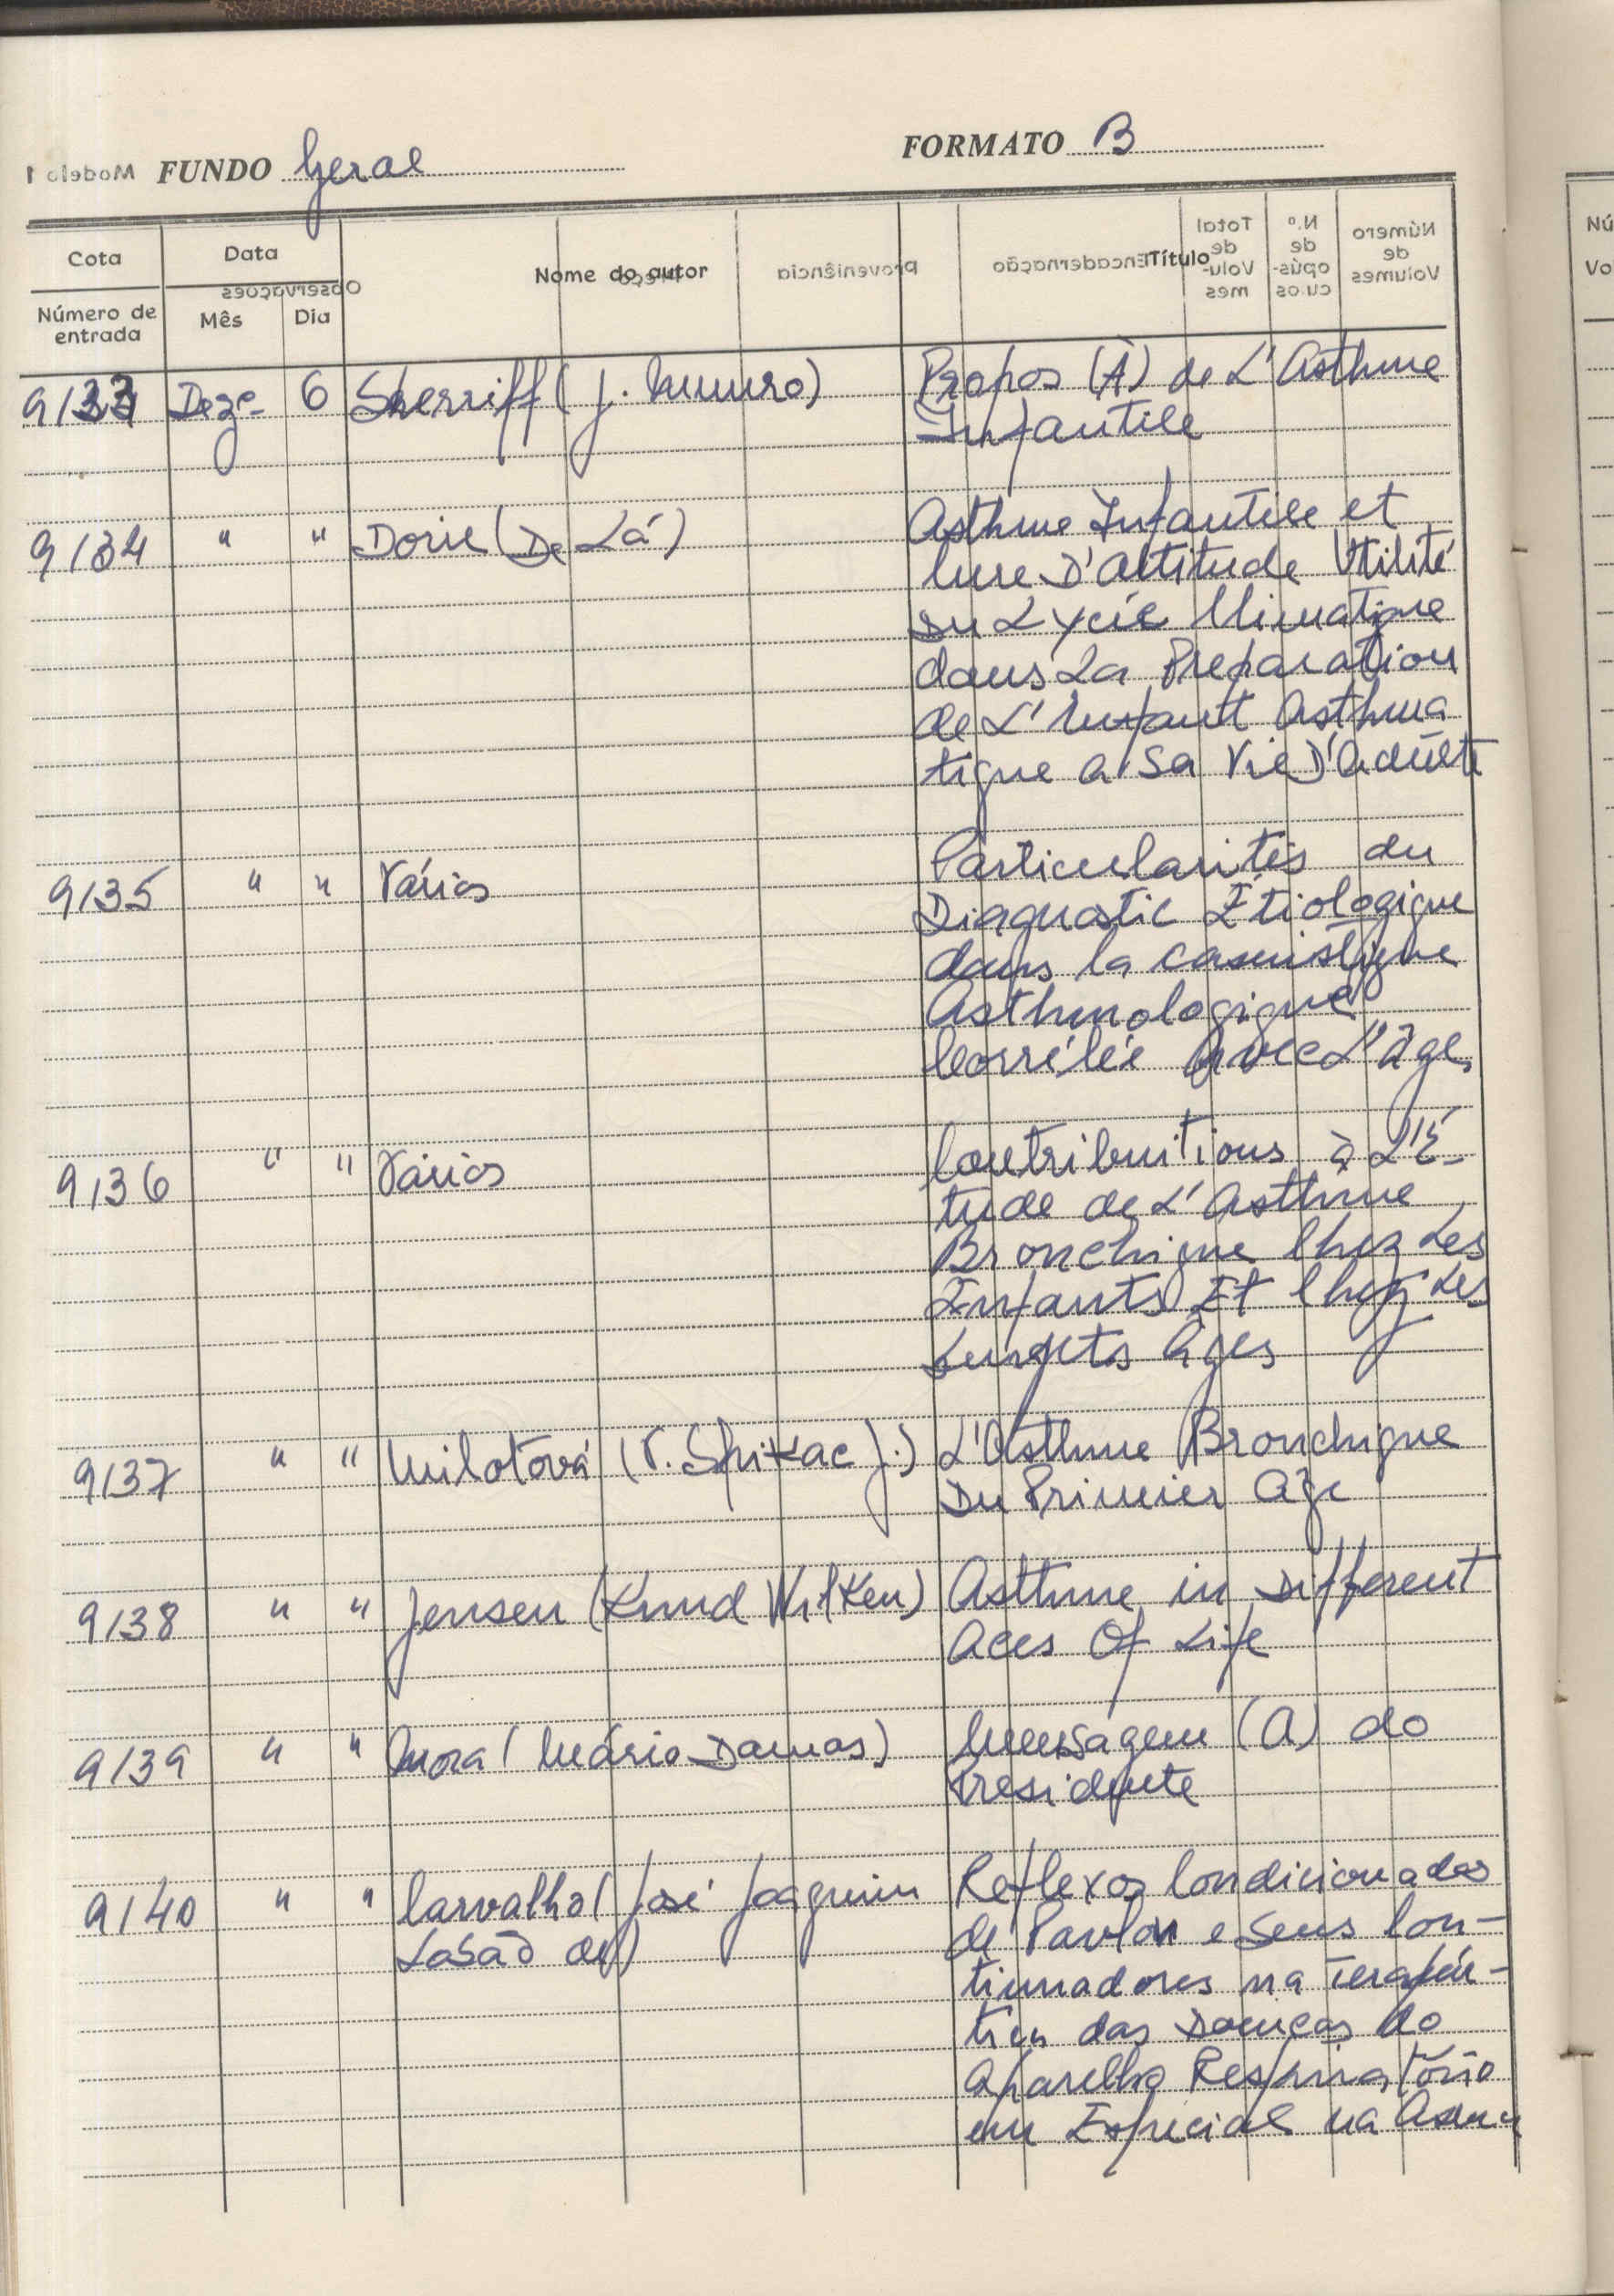 FUNDO Geral FORMATO B
Modelo 1
Cota Data Nome do autor Título
Número de entrada Mês Dia
Observações Preço proveniência Encadernação Total de Volumes N.º de opúsculos Número de Volumes
9133 Deze 6 Sherriff (J. Munro) Propos (À) de L'Asthme
Infantile
9134 " " Dorie (De Lá) Asthme Infantile et
Cure D'Altitude Utilité
Du Lycée Climatique
dans La Preparation
de L'Enfant Asthma
tique a Sa Vie D'adulte
9135 " " Vários Particularités du
Diagnostic Étiologique
dans la casuistique
Asthmologique
Corrélée Avec L'âge
9136 " " Vários Contribuitions à L'É-
tude de L'Asthme
Bronchique Chez Les
Enfants Et Chez Les
Sujets Âges
9137 " " Milotová (V. Spirkac J.) L'Asthme Bronchique
Du Primier Age
9138 " " Jensen (Knud Wilken) Asthme in Different
Aces Of Life
9139 " " Mora (Mário Damas) Mensagem (A) do
Presidente
9140 " " Carvalho (José Joaquim Reflexos Condicionados
Lobão de) de Pavlov e Seus Con-
tinuadores na Terapêu-
tica das Doenças do
Aparelho Respiratório
em Especial na Asma
Nú
Vo